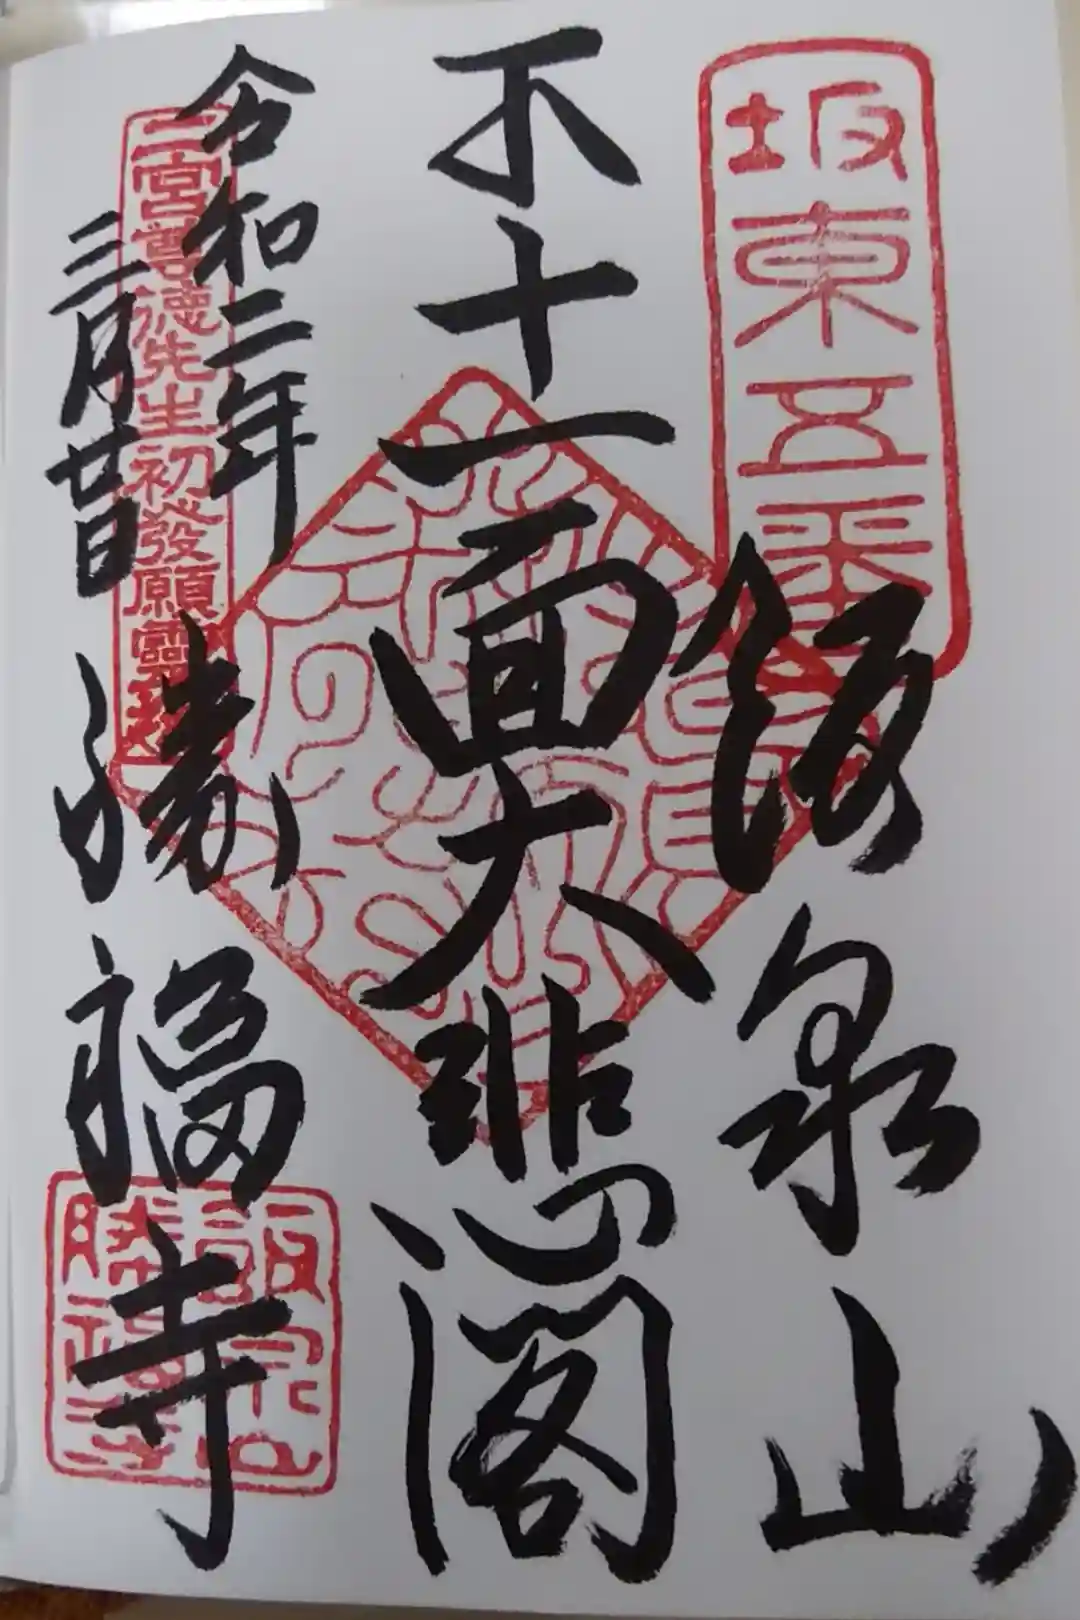 坂東五番
飯泉山
不十一面大悲閣
令和二年
三月廿日
二宮尊徳先生初發願靈場
勝福寺
飯泉山
勝福寺